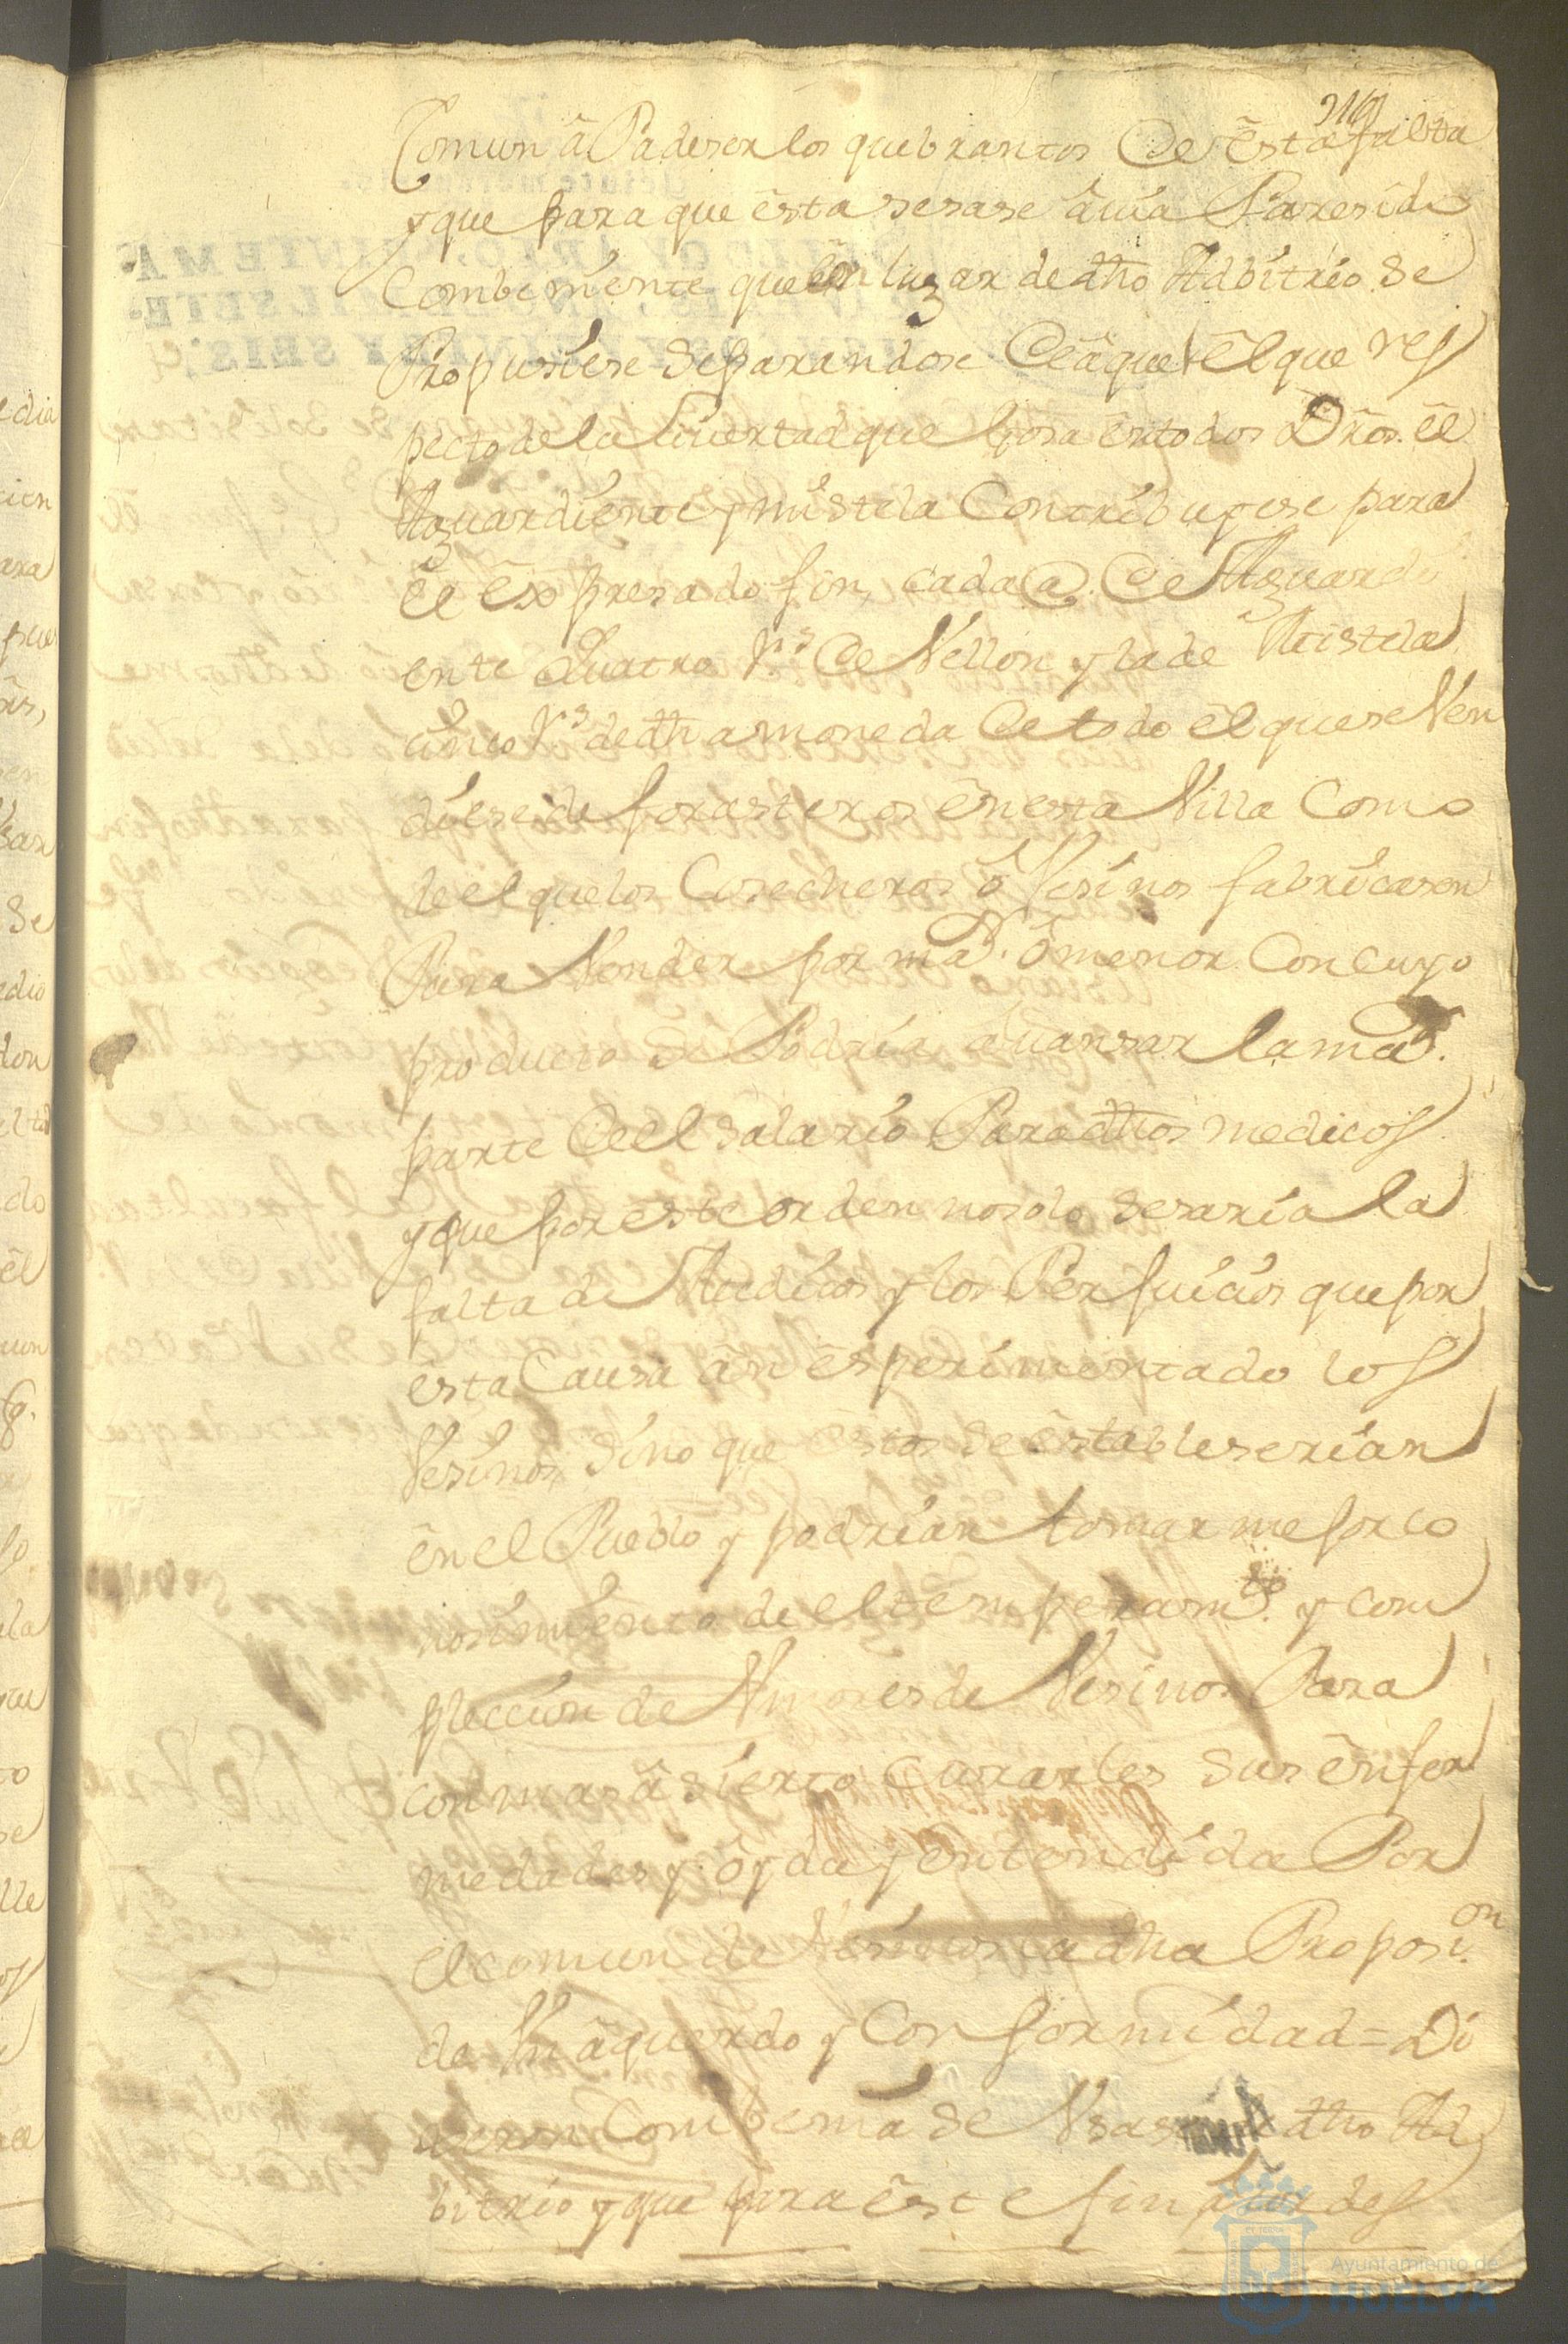 219
Comun â Padeser los quebrantos de êsta falta
y que para que êsta sesase âuia Paresido
Combeniente que ên lugar de dho Adbitrio se
Propusiese separandose de âquel êl que res
pecto de la Liuertad que gosa ên todos Dros. êl
Aguardiente y mistela Contribuyese para
êl êxpresado fin, cada @. de Aguardi
ente Quatro rs. de Vellon y la de Mistela
cinco rs. de dha moneda de todo êl que se Ven
diese de forasteros ên esta Villa Como
de el que los Cosecheros ô Vesinos fabricasen
Para Vender por mar. ô menor Con cuyo
producto se Podria âuansar la mar.
parte de el salario Para dhos medicos
y que por este orden no solo sesaria la
falta de Medicos y los Perjuicios que por
êsta Causa ân êsperimentado los
Vesinos sino que êstos se êstableserian
ên el Pueblo y podrian tomar mejor co
nosimiento de el temperamto. y com
pleccion de Vmores de Vesinos Para
con mas âsierto Curarles sus ênfer
medades y ôyda y êntendida Por
el comun de Vesinos la dha Proposion.
de Vn âquerdo y Conformidad = Di
jeron Combenia se Vsase de dho Ad
bitrio y que para êste fin
Ayuntamiento de
HUELVA